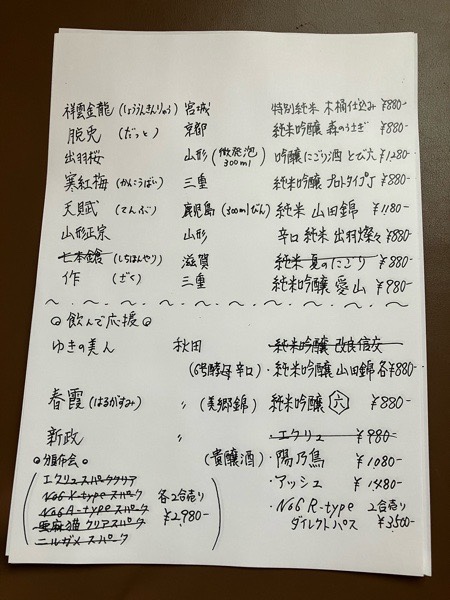 祥雲金龍 (しょううんきんりゅう) 宮城 特別純米 木桶仕込み ¥880-
脱兎 (だっと) 京都 純米吟醸 森のうさぎ ¥880-
出羽桜 山形 (微発泡 300ml) 吟醸にごり酒 とび六 ¥1280-
寒紅梅 (かんこうばい) 三重 純米吟醸 プロトタイプJ ¥880-
天賦 (てんぶ) 鹿児島 (300mlびん) 純米 山田錦 ¥1180-
山形正宗 山形 辛口 純米 出羽燦々 ¥880-
七本鎗 (しちほんやり) 滋賀 純米 夏のにごり ¥880-
作 (ざく) 三重 純米吟醸 愛山 ¥980-
飲んで応援
ゆきの美人 秋田 純米吟醸 改良信交
(6号酵母 辛口) ・純米吟醸 山田錦 各¥880-
春霞 (はるがすみ) 〃 (美郷錦) 純米吟醸 六 ¥880-
新政 〃 エクリュ ¥980-
(貴醸酒) ・陽乃鳥 ¥1080-
・アッシュ ¥1480-
・No6 R-type 2合売り
ダイレクトパス ¥3500-
頒布会
エクリュスパーククリア
No6 X-type スパーク 各2合売り
No6 A-type スパーク ¥2,980-
亜麻猫 クリアスパーク
ニルガメ スパーク